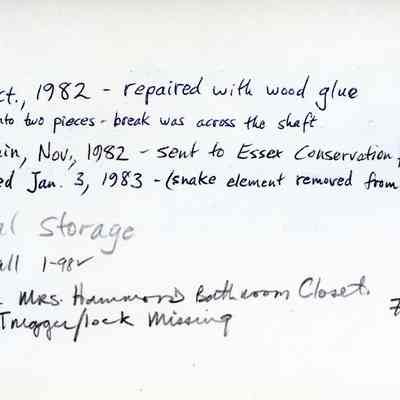 ct., 1982 - repaired with wood glue
nto two pieces - break was across the shaft
in, Nov., 1982 - sent to Essex Conservation
ed Jan. 3, 1983 - (snake element removed from
al Storage
all 1-98✓
Mrs. Hammond Bathroom Closet.
Trigger/lock Missing